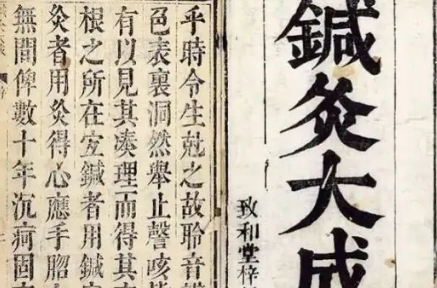 鍼灸大成
致和堂梓
乎時令生尅之故聆音
色表裏洞然舉止謦咳
有以見其凑理而得其
根之所在宜鍼者用鍼
灸者用灸得心應手
無間俾數十年沉疴固